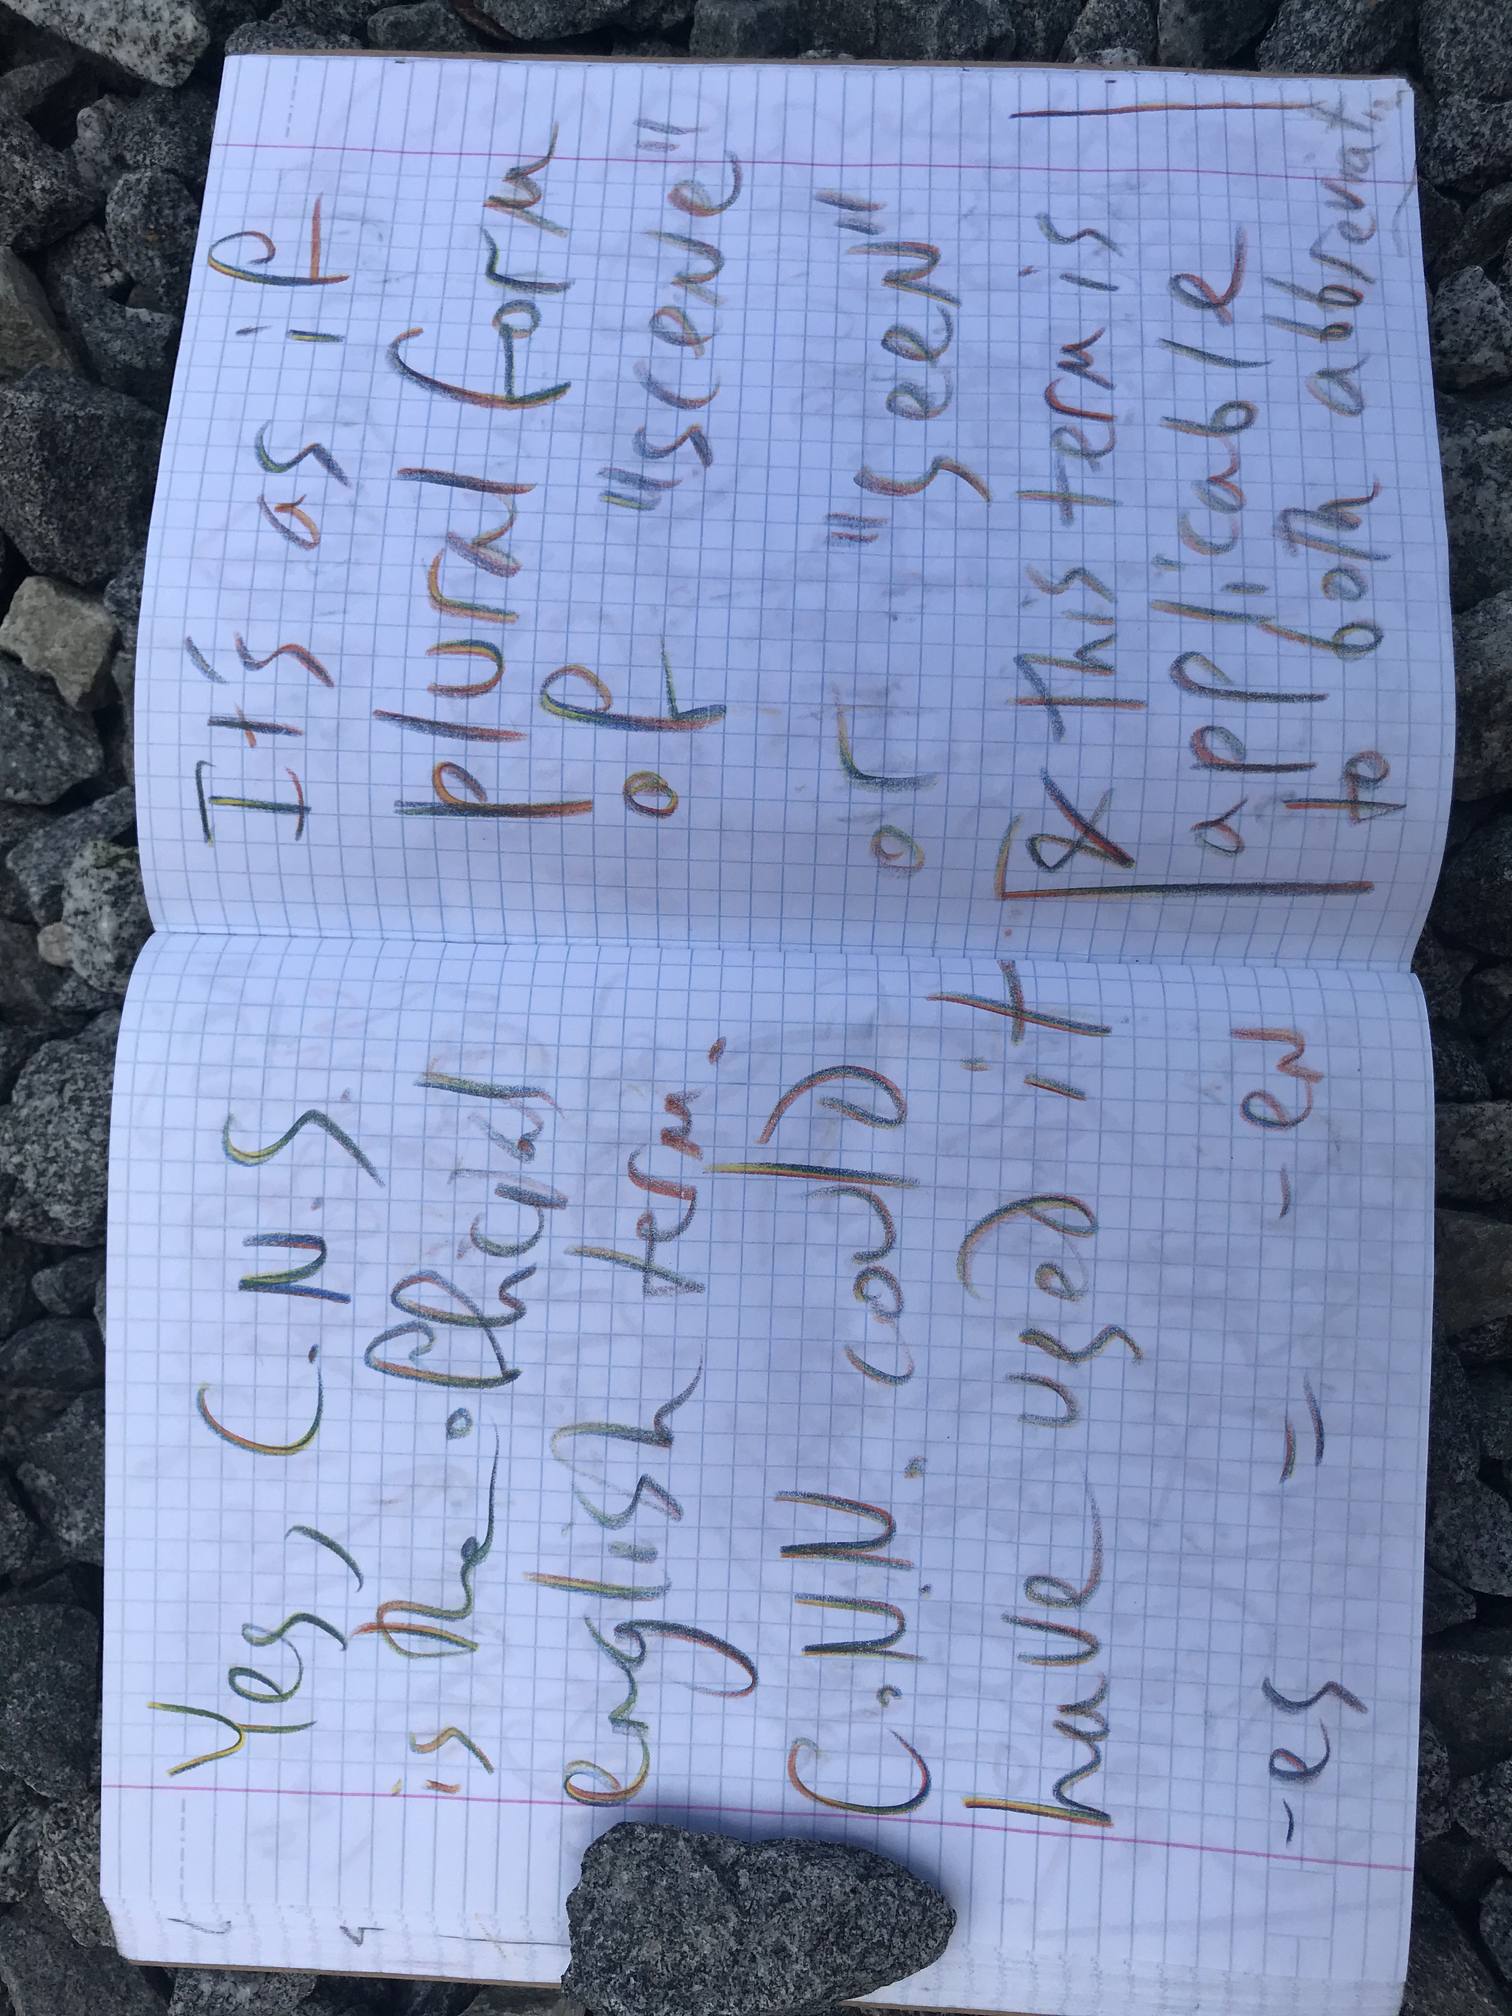 Yes, C.N.S.
is the official
english term.
C.N.N. could
have used it.
-es = -en
It's as if
plural form
of "scene"
or "seen"
& this term is
applicable
to both